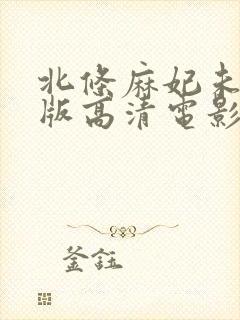 北條麻妃未
版高清電影
釜鈺